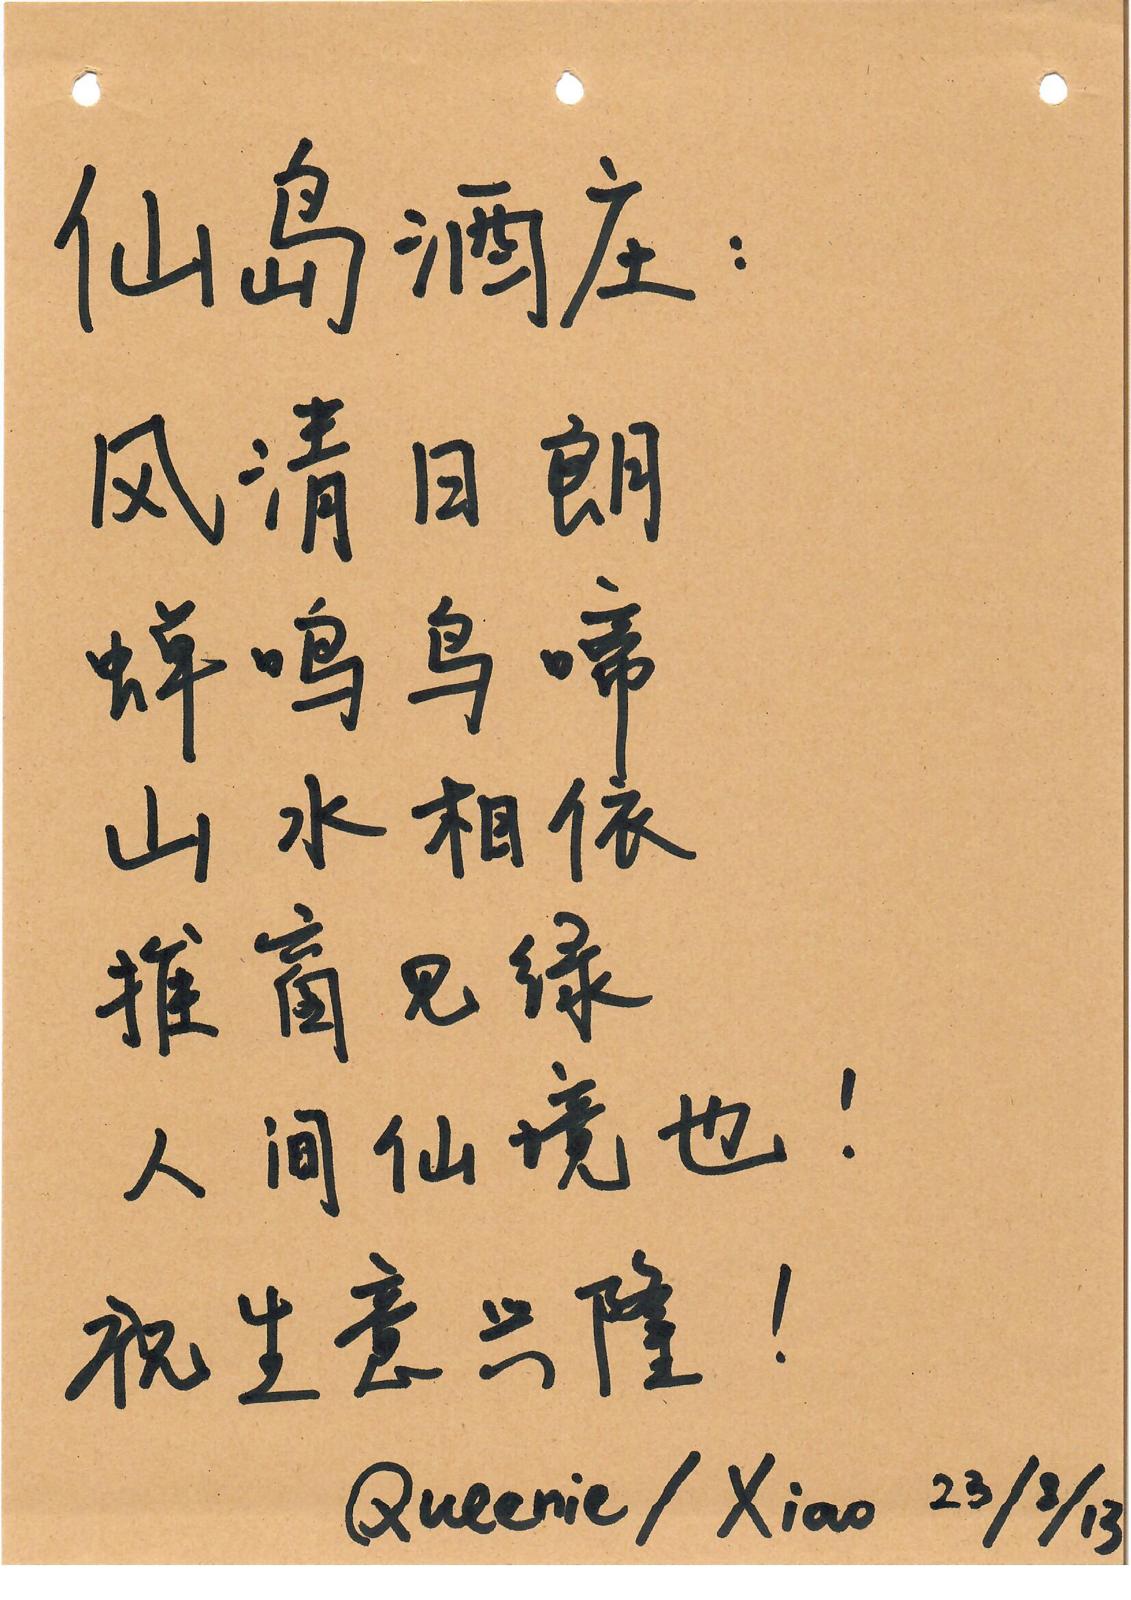 仙岛酒庄：
风清日朗
蝉鸣鸟啼
山水相依
推窗见绿
人间仙境也！
祝生意兴隆！
Queenie/Xiao 23/8/13